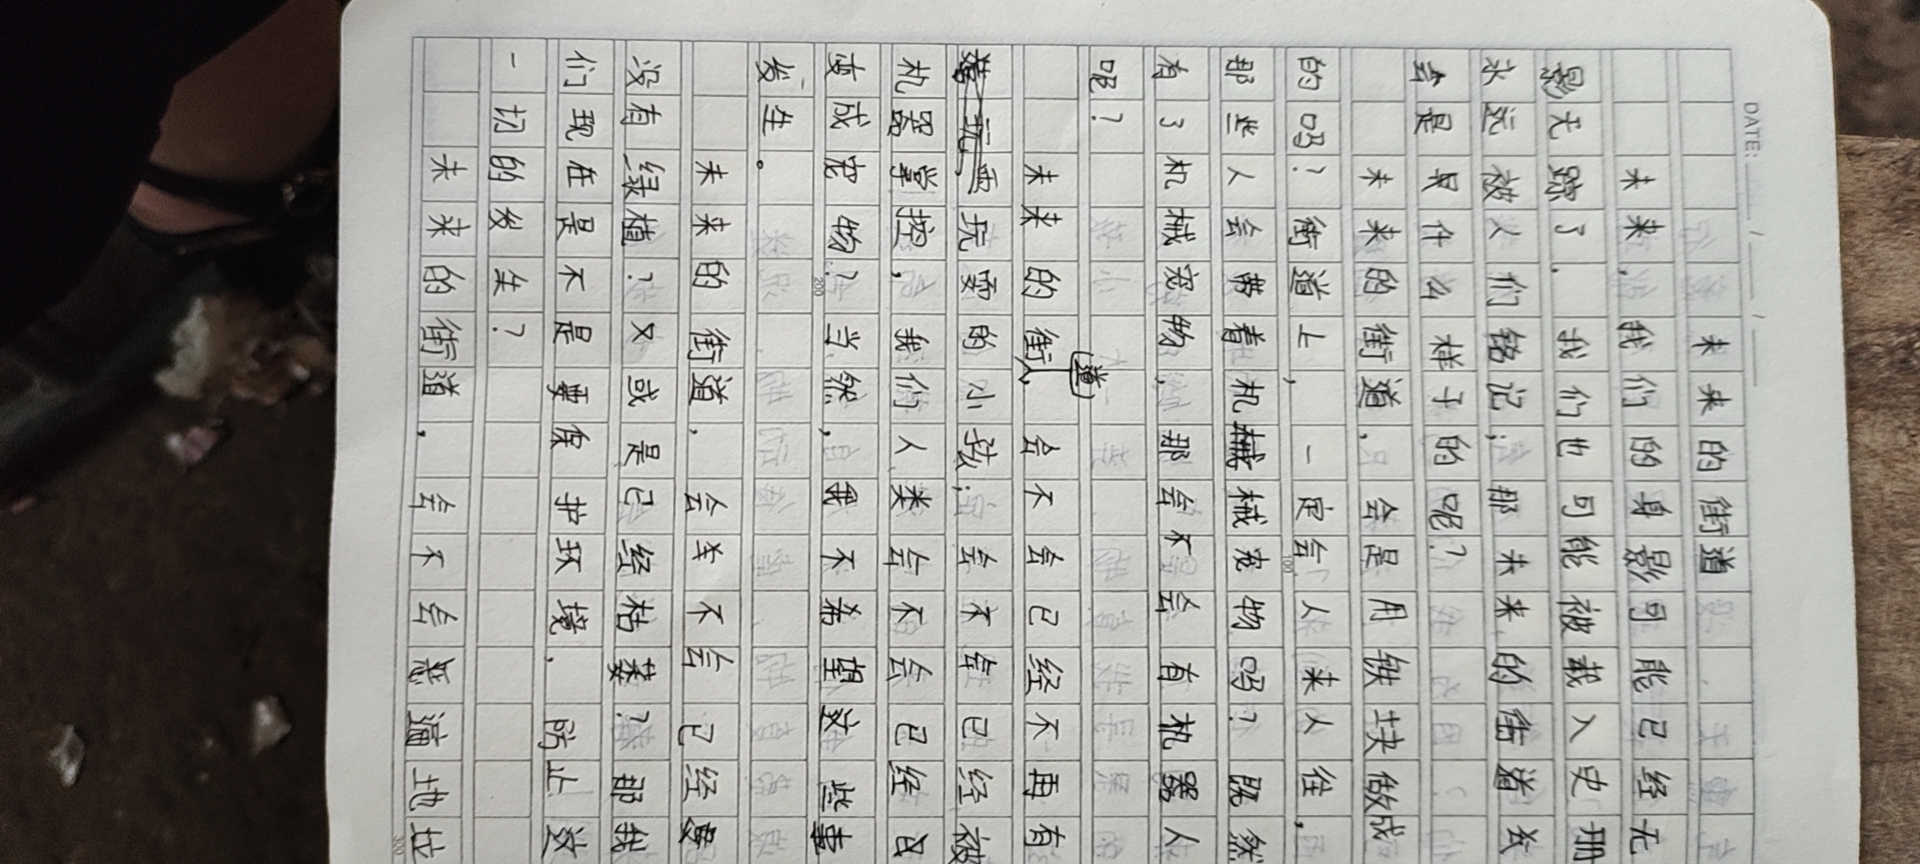 DATE: / /
未来的街道
未来,我们的身影可能已经无
影无踪了,我们也可能被载入史册
永远被人们铭记;那未来的街道究
会是什么样子的呢?
未来的街道,会是用铁块做成
的吗?街道上,一定会人来人往,
那些人会带着机械宠物吗?既然
有了机械宠物,那会不会有机器人
呢?
未来的街道会不会已经不再有
玩耍的小孩;会不会已经被
机器掌控,我们人类会不会已经
变成宠物?当然,我不希望这些事
发生。
未来的街道,会不会已经
没有绿植?又或是已经枯萎?那我
们现在是不是要保护环境,防止这
一切的发生?
未来的街道,会不会遍地垃
100
200
300